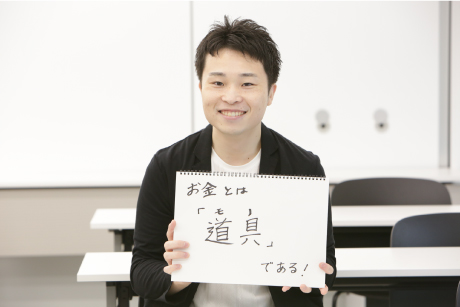 お金とは
モノ
「道具」
である!